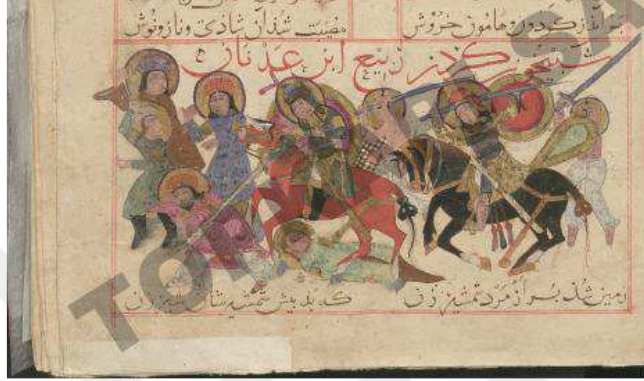 بر آمذ ز کردون و هامون خروش مصیبت شذ آن شاذی و ناز و نوش
شبیخون کردن ربیع ابن عدنان
زمین شذ پر از مرد شمشیر زن که بذ پیش شمشیرشان شیر زن